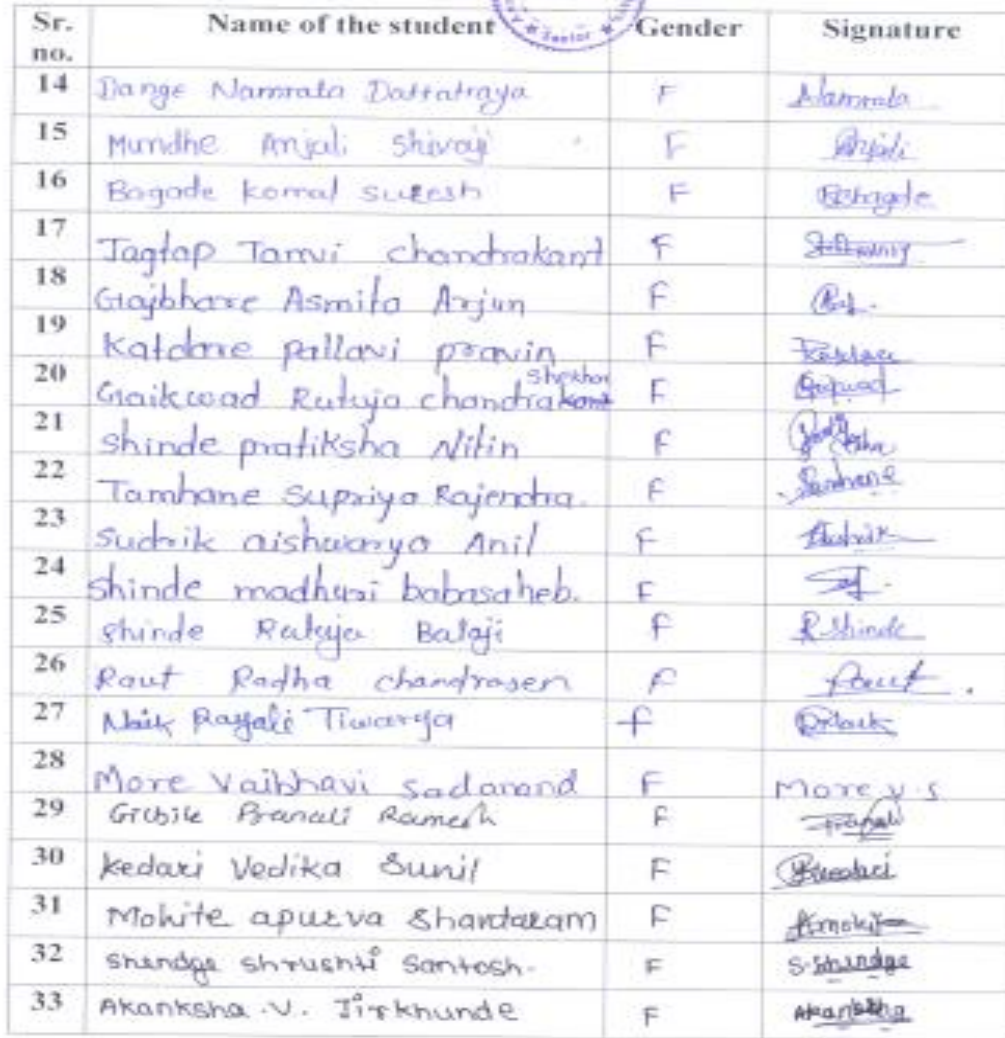 Sr. no. Name of the student Gender Signature
Junior
14 Dange Namrata Dattatraya F Namrata
15 Mundhe Anjali Shivaji F Anjali
16 Bagade Komal Suresh F
17 Jagtap Tanvi chandrakant F
18 Gajbhare Asmita Arjun F
19 Katdare pallavi pravin F
20 Gaikwad Rutuja chandrashekhar F
21 Shinde pratiksha Nitin F
22 Tamhane Supriya Rajendra. F Tamhane
23 Sudrik aishwarya Anil F
24 Shinde madhuri babasaheb. F
25 Shinde Rutuja Balaji F R.Shinde
26 Raut Radha chandrasen F Raut.
27 Naik Rayali Tiwarya F
28 More Vaibhavi Sadanand F More V.S
29 Pranali Ramesh F Pranali
30 Kedari Vedika Sunil F
31 Mohite apurva Shantaram F
32 Shendge Shrushti Santosh. F S.Shendge
33 Akanksha .V. Jirkhunde F Akanksha